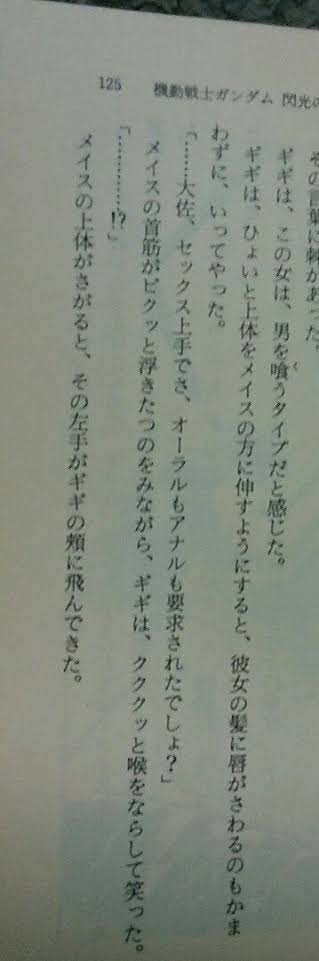 125
機動戦士ガンダム 閃光の
その言葉に棘があった。
ギギは、この女は、男を喰うタイプだと感じた。
ギギは、ひょいと上体をメイスの方に伸すようにすると、彼女の髪に唇がさわるのもかま
わずに、いってやった。
「………大佐、セックス上手でさ、オーラルもアナルも要求されたでしょ？」
メイスの首筋がピクッと浮きたつのをみながら、ギギは、クククッと喉をならして笑った。
「…………!?」
メイスの上体がさがると、その左手がギギの頬に飛んできた。